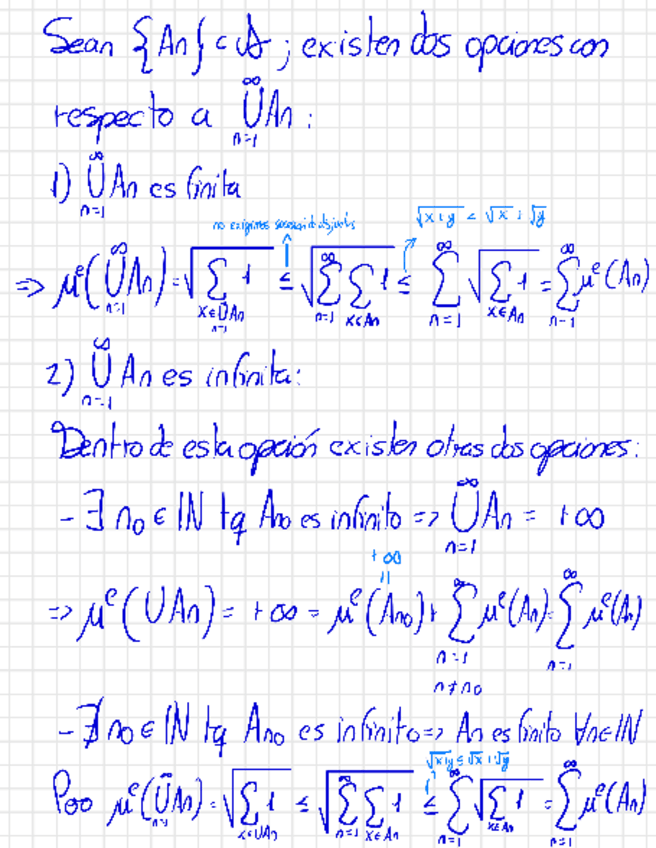 Sean {An} ⊂ A ; existen dos opciones con
respecto a ∞⋃n=1 An :
1) ∞⋃n=1 An es finita
no exigimos sucesión de disjuntos √x+y ≤ √x + √y
=> μᵉ(∞⋃n=1 An) = √∑x∈∞⋃n=1 An 1 ≤ √∞∑n=1 ∑x∈An 1 ≤ ∞∑n=1 √∑x∈An 1 = ∞∑n=1 μᵉ(An)
2) ∞⋃n=1 An es infinita:
Dentro de esta opción existen otras dos opciones:
- ∃ n₀ ∈ ℕ tq An₀ es infinito => ∞⋃n=1 An = +∞
+∞
=> μᵉ(⋃An) = +∞ = μᵉ(An₀) + ∞∑n=1 n≠n₀ μᵉ(An) = ∞∑n=1 μᵉ(An)
- ∄ n₀ ∈ ℕ tq An₀ es infinito => An es finito ∀n∈ℕ
√x+y ≤ √x + √y
Pero μᵉ(∞⋃n=1 An) = √∑x∈⋃An 1 ≤ √∞∑n=1 ∑x∈An 1 ≤ ∞∑n=1 √∑x∈An 1 = ∞∑n=1 μᵉ(An)